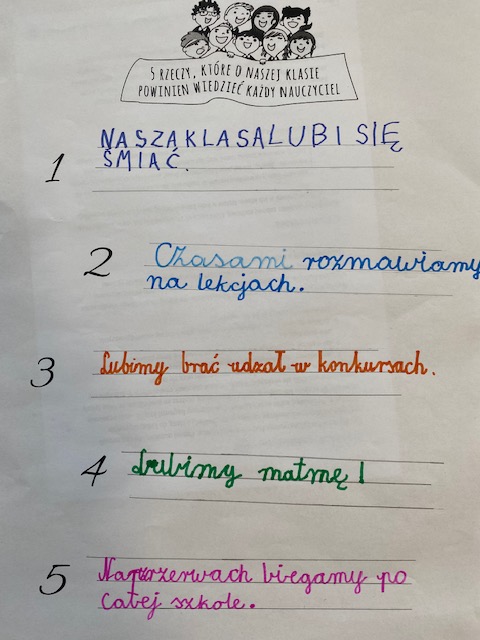 5 RZECZY, KTÓRE O NASZEJ KLASIE
POWINIEN WIEDZIEĆ KAŻDY NAUCZYCIEL
1 NASZA KLASA LUBI SIĘ
ŚMIAĆ.
2 Czasami rozmawiamy
na lekcjach.
3 Lubimy brać udzał w konkursach.
4 Lubimy matmę!
5 Na przerwach biegamy po
całej szkole.